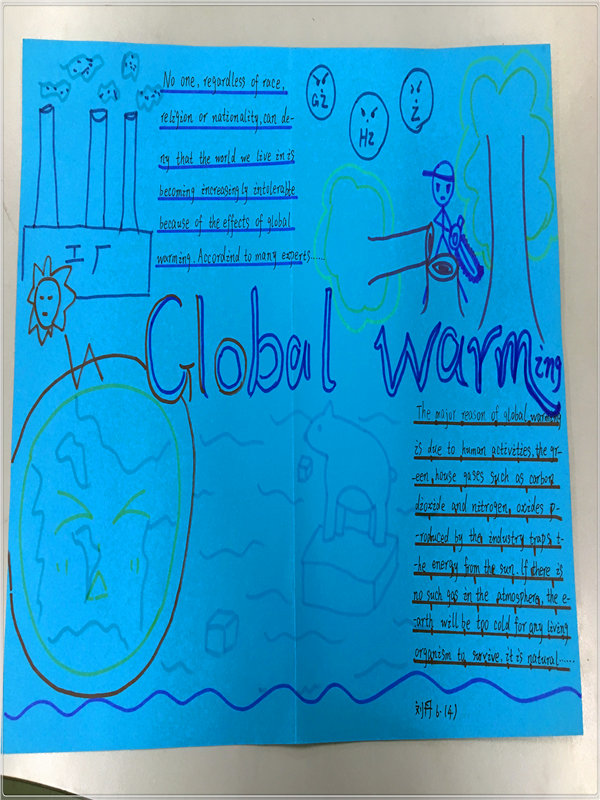 No one, regardless of race,
religion or nationality, can de-
ny that the world we live in is
becoming increasingly intolerable
because of the effects of global
warming. Accordind to many experts......
GZ
HZ
Z
工厂
Global warming
The major reason of global warming
is due to human activities, the gr-
-een, house gases such as carbon
dioxide and nitrogen, oxides p-
-roduced by the industry traps t-
-he energy from the sun. If there is
no such gas in the atmosphere, the e-
-arth will be too cold for any living
organism to survive. it is natural......
刘丹 6.(4)